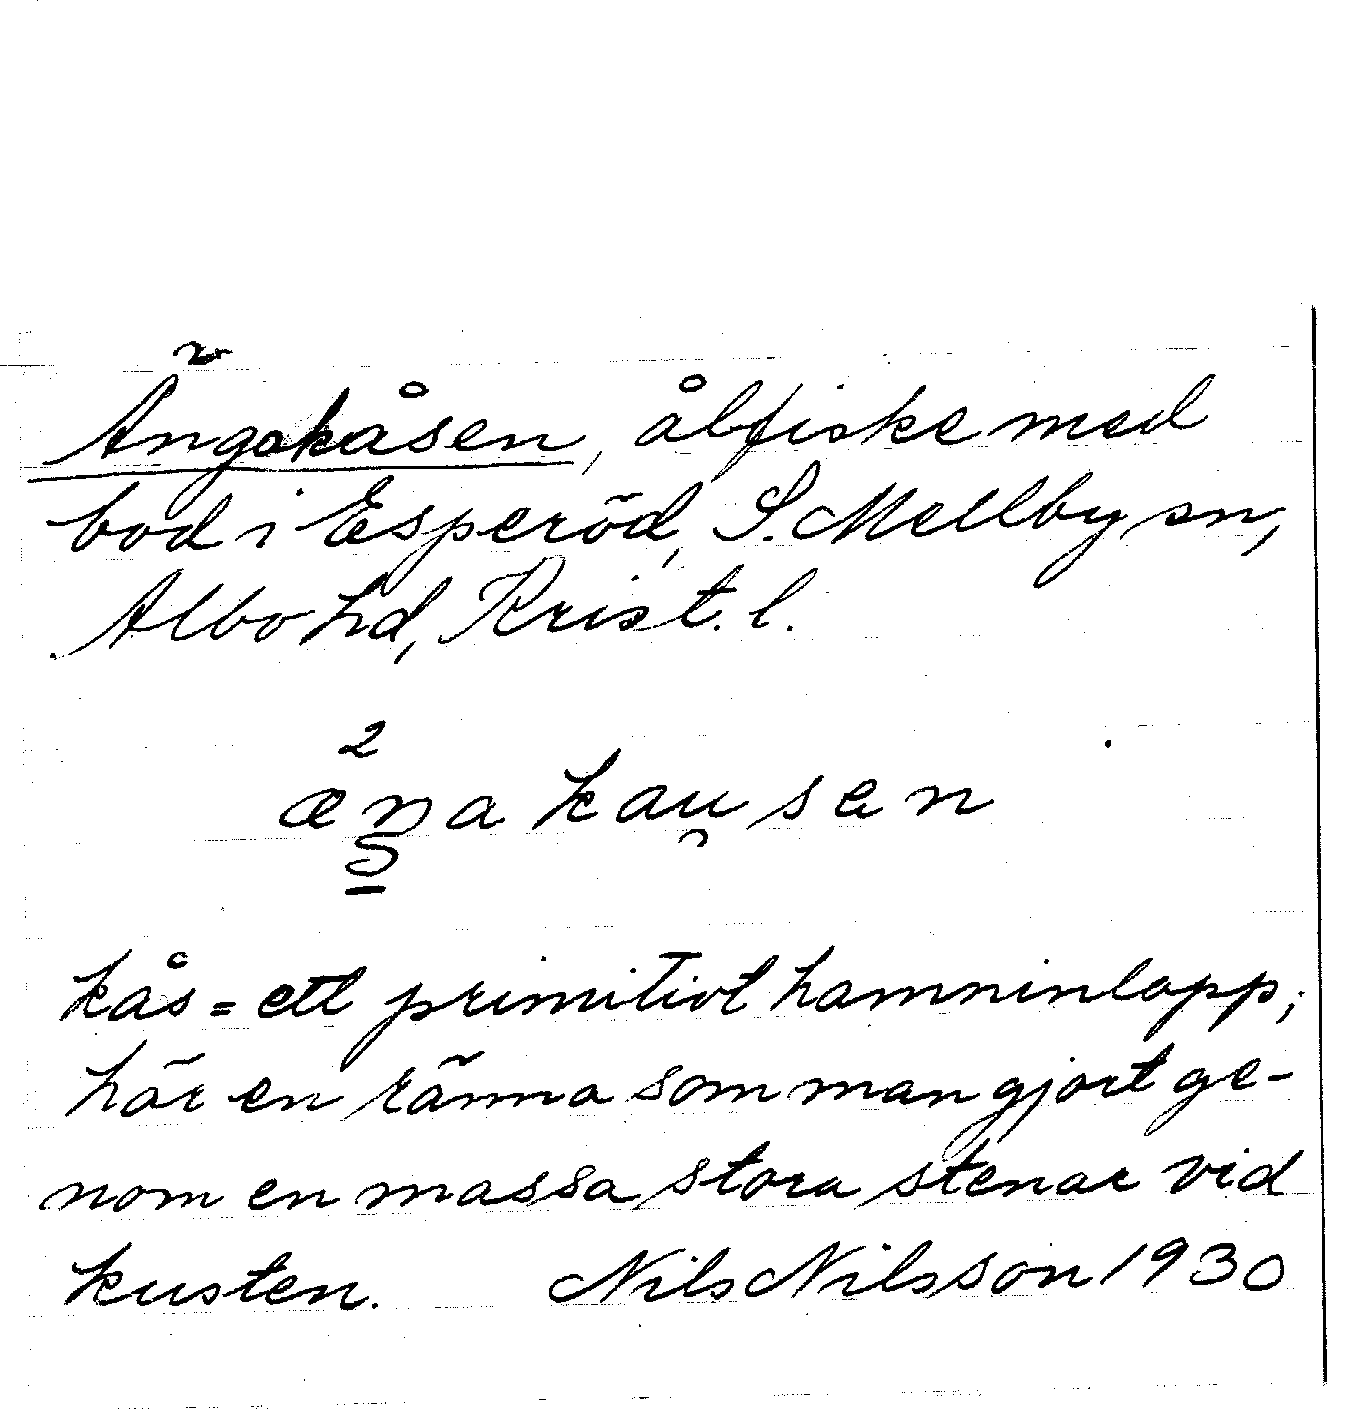 Ängakåsen, ålfiske med
bod i Esperöd, S. Mellby sn,
Albo hd, Krist. l.
kås = ett primitivt hamninlopp;
här en ränna som man gjort ge-
nom en massa stora stenar vid
kusten. Nils Nilsson 1930